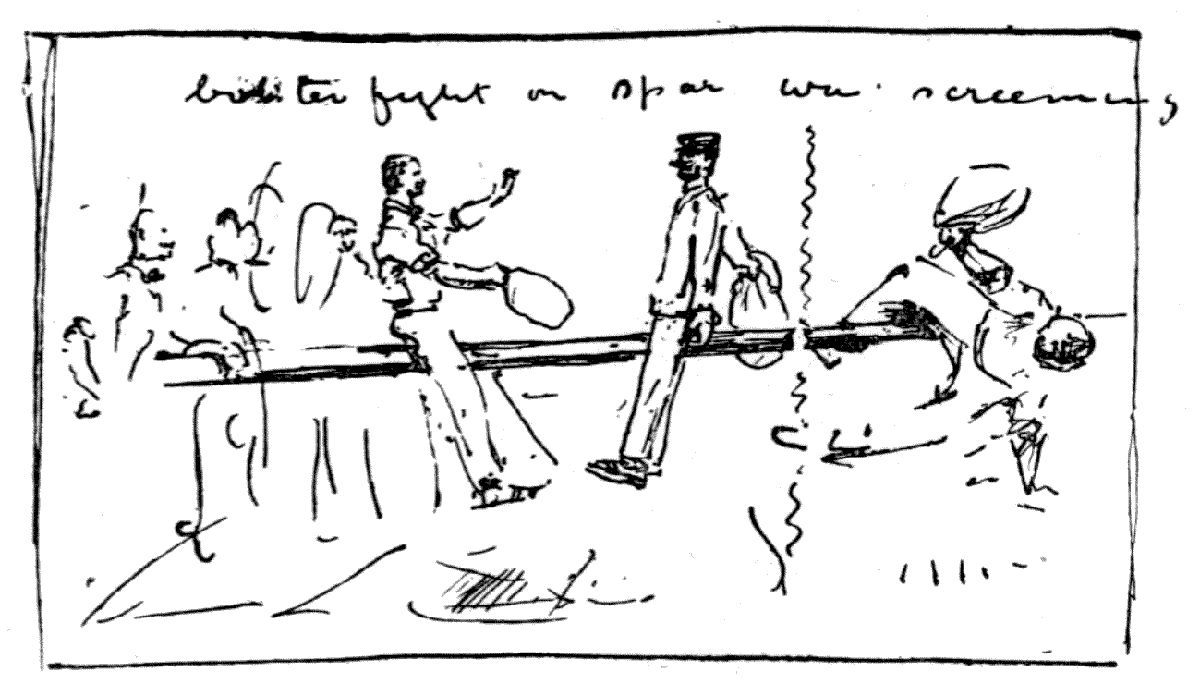 bolster fight on spar screaming